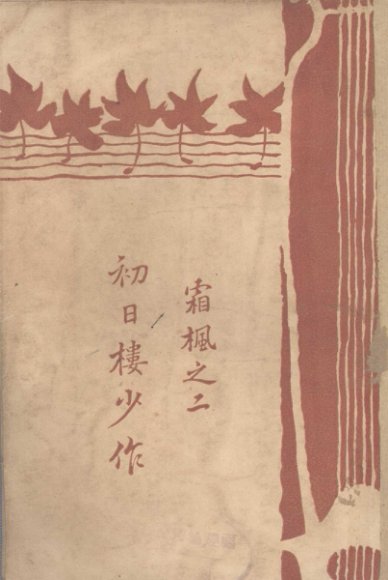 霜楓之二
初日樓少作